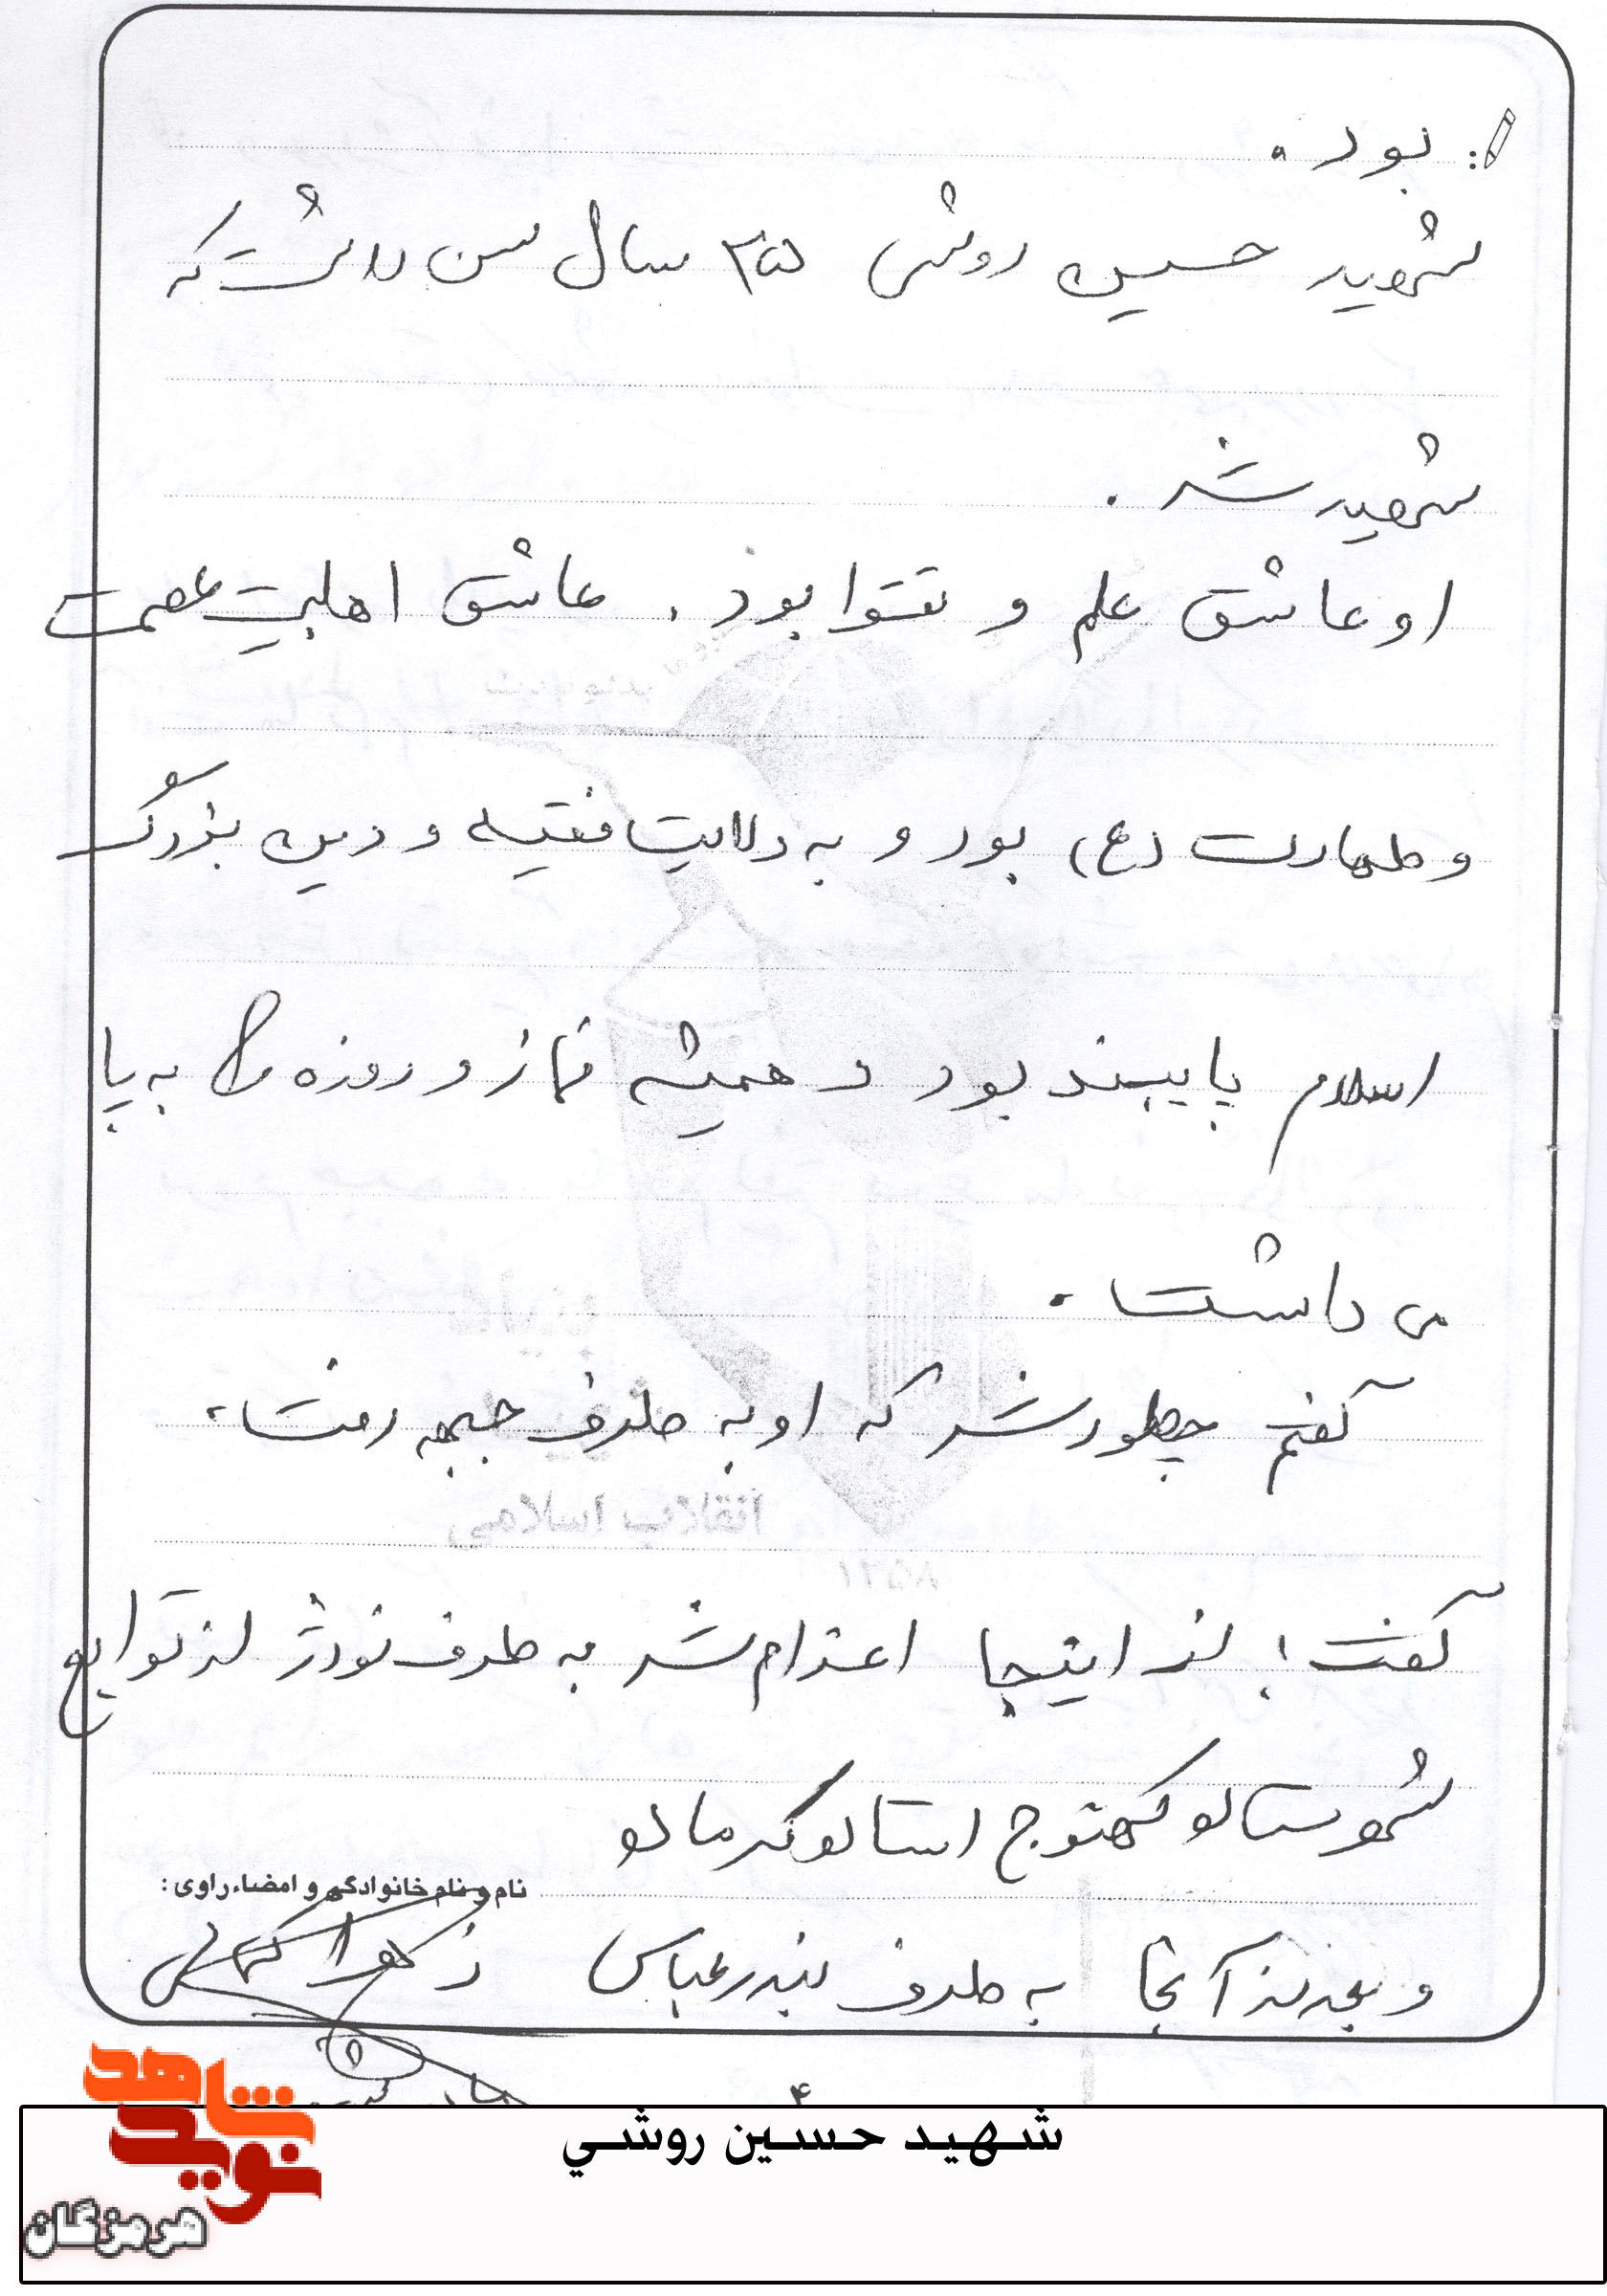 : بود .
شهید حسین روشی ۳۵ سال سن داشت که
شهید شد .
او عاشق علم و تقوا بود . عاشق اهلبیت عصمت
و طهارت (ع) بود و به ولایت فقیه و دین بزرگ
اسلام پایبند بود و همیشه نماز و روزه را به پا
می داشت .
گفتم چطور شد که او به طرف جبهه رفت .
گفت : از اینجا اعزام شد به طرف نودژ از توابع
شهرستان کهنوج استان کرمان
نام و نام خانوادگی و امضاء راوی :
و بعد از آنجا به طرف بندرعباس
۴
شهید حسین روشي
شاهد
نوید
هرمزگان
انقلاب اسلامی